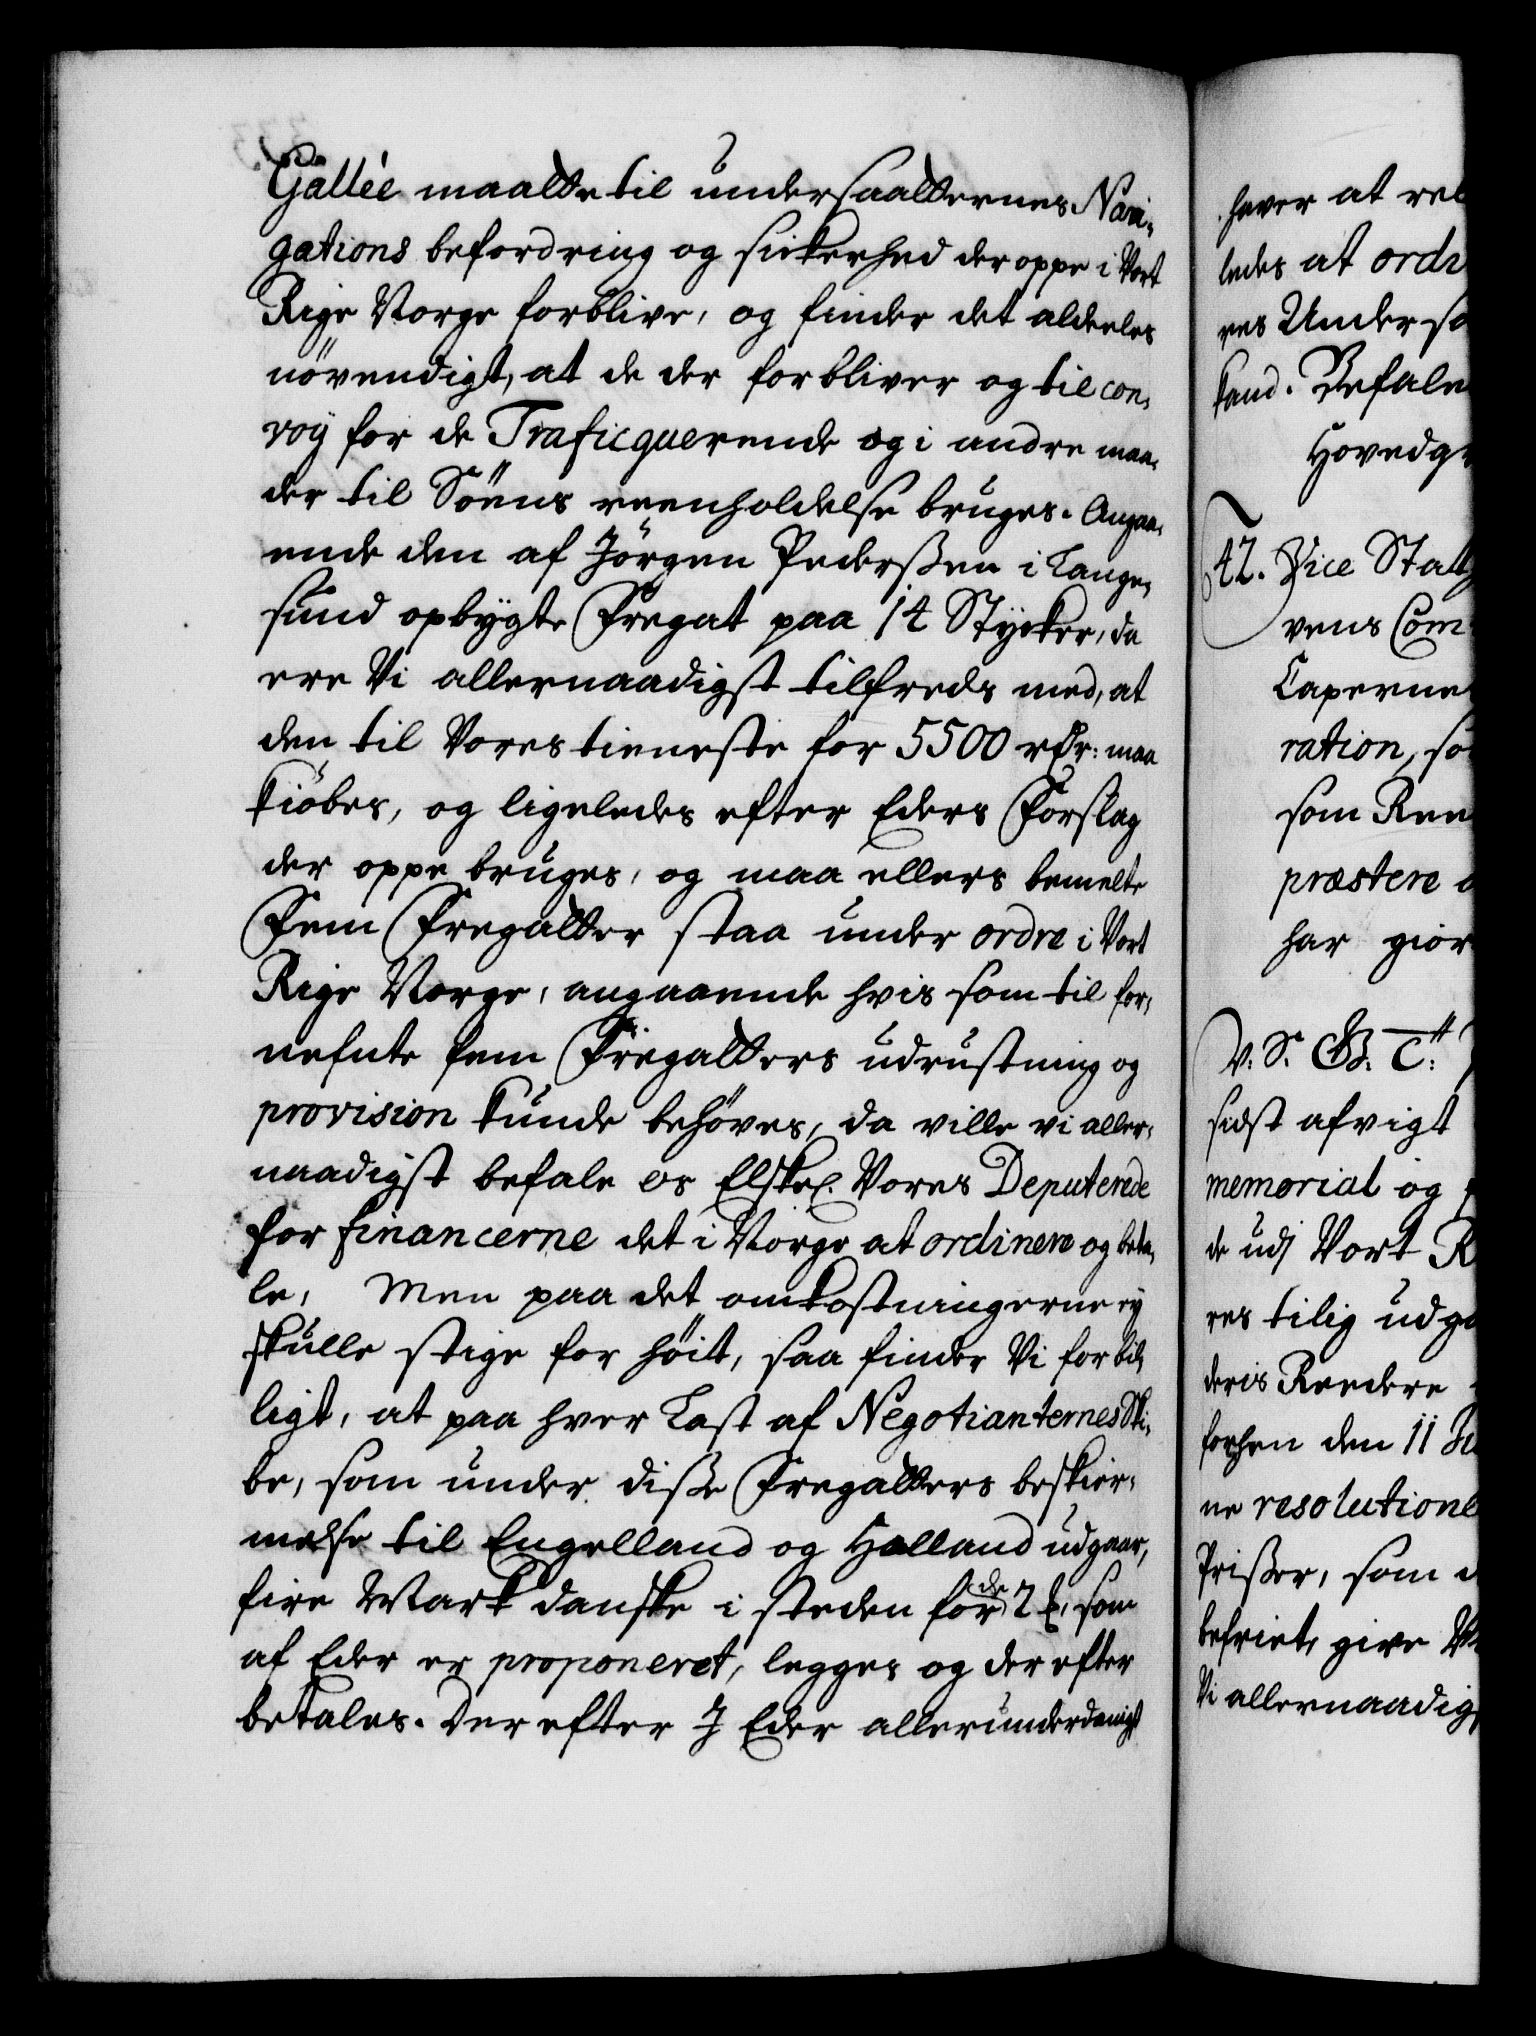 Gallée maatte til undersaatternes Navi-
gations befordring og sickerhed der oppe i Vort
Rige Norge forblive, og finder det aldeeles
növendigt, at de der forbliver og til con-
voij for de Traficquerende og i andre maa-
der til Söens reenholdelse bruges. Angaa-
ende den af Jörgen Pederßen i Lange-
sund opbygte Fregat paa 14 Stycker, da
ere Vi allernaadigst tilfreds med, at
den til Vores tieneste for 5500 rdr: maa
kiöbes, og ligeledes efter Eders Forslag
der oppe bruges, og maa ellers bemelte
Fem Fregatter staa under ordre i Vort
Rige Norge, angaaende hvis som til for-
nefnte fem Fregatters udrustning og
provision kunde behöves, da ville vi aller-
naadigst befale os Elskel. Vores Deputerede
for financerne det i Norge at ordinere og beta-
le, Men paa det omkostningerne ej
skulle stige for höit, saa finder Vi for bil-
ligt, at paa hver Last af Negotianternes Ski-
be, som under disse Fregatters beskier-
melse til Engelland og Holland udgaar,
fire Mark danske i steden for de 2 , som
af Eder er proponeret, legges og der efter
betales. Der efter I Eder allerunderdanigst
haver at re
ledes at ord
res Underso
kand. Befale
Hovedq
42. Vice Statt
vens Com
Caperne
ration, so
som Ree
præstere
har giör
V. S. G. T.
sidst afvigt
memorial og
de udj Vort R
res tilig udg
deris Reedere
forhen den 11 Ju
ne resolutione
Prißer, som
befriet, give
Vi allernaadig